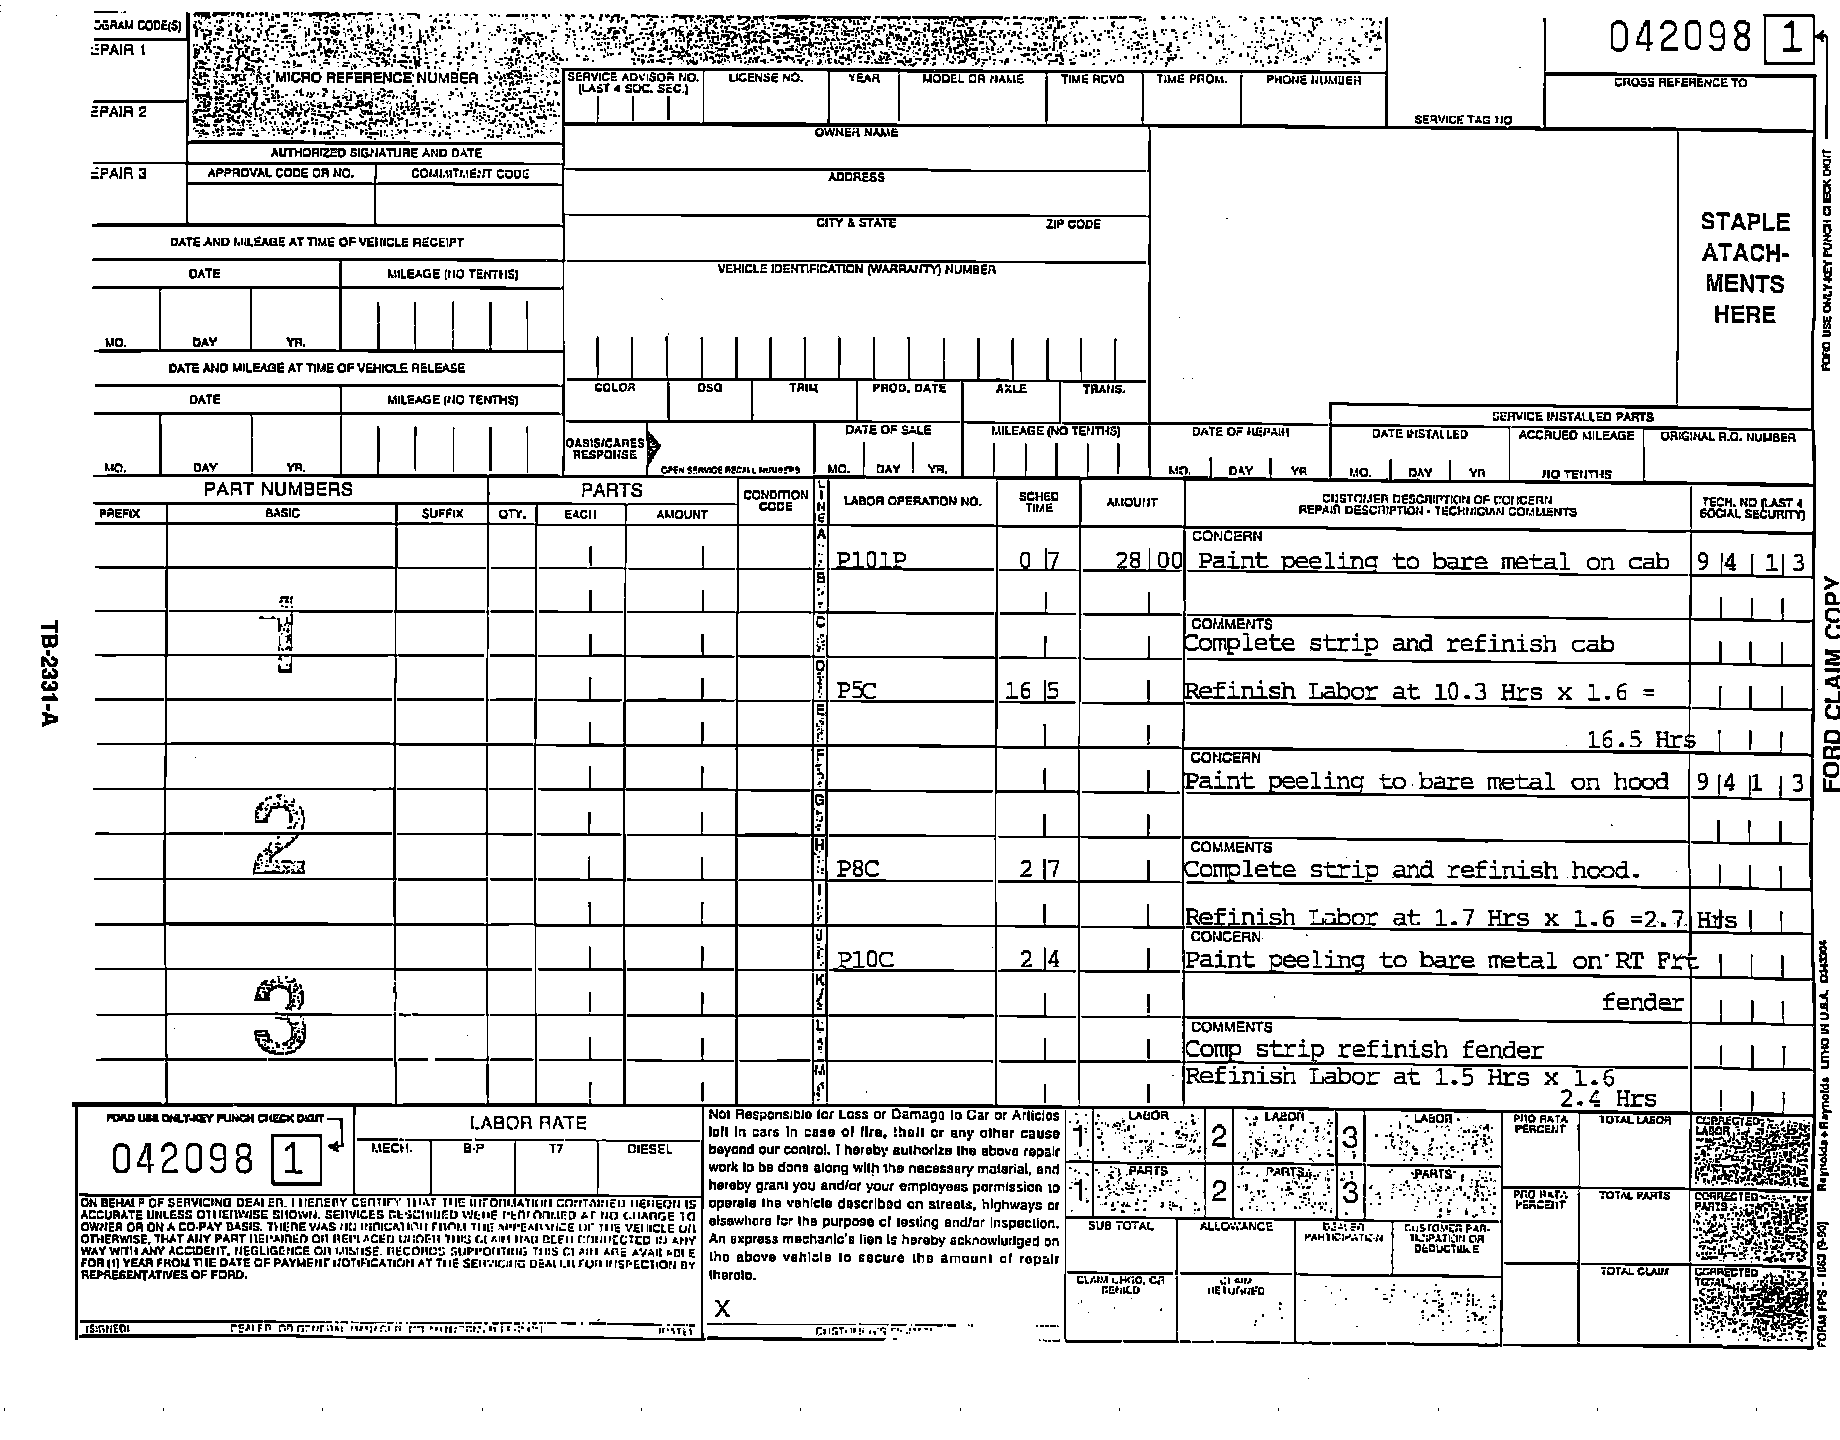 OGRAM CODE(S)
EPAIR 1
EPAIR 2
EPAIR 3
MICRO REFERENCE NUMBER
AUTHORIZED SIGNATURE AND DATE
APPROVAL CODE OR NO. COMMITMENT CODE
SERVICE ADVISOR NO. LICENSE NO. YEAR MODEL OR NAME TIME RCVD TIME PROM. PHONE NUMBER
(LAST 4 SOC. SEC.)
042098 1
CROSS REFERENCE TO
SERVICE TAG NO
OWNER NAME
ADDRESS
CITY & STATE ZIP CODE
VEHICLE IDENTIFICATION (WARRANTY) NUMBER
STAPLE
ATACH-
MENTS
HERE
DATE AND MILEAGE AT TIME OF VEHICLE RECEIPT
DATE MILEAGE (NO TENTHS)
MO. DAY YR.
DATE AND MILEAGE AT TIME OF VEHICLE RELEASE
DATE MILEAGE (NO TENTHS)
MO. DAY YR.
COLOR DSO TRIM PROD. DATE AXLE TRANS.
OASIS/CARES
RESPONSE
OPEN SERVICE RECALL NUMBERS
DATE OF SALE MILEAGE (NO TENTHS)
MO. DAY YR.
DATE OF REPAIR
MO. DAY YR
SERVICE INSTALLED PARTS
DATE INSTALLED ACCRUED MILEAGE ORIGINAL R.O. NUMBER
MO. DAY YR NO TENTHS
PART NUMBERS PARTS CONDITION CODE LINE LABOR OPERATION NO. SCHED TIME AMOUNT
PREFIX BASIC SUFFIX QTY. EACH AMOUNT
CUSTOMER DESCRIPTION OF CONCERN
REPAIR DESCRIPTION - TECHNICIAN COMMENTS
TECH. NO (LAST 4
SOCIAL SECURITY)
1
CONCERN
P101P 0 7 28 00 Paint peeling to bare metal on cab 9 4 1 3
COMMENTS
Complete strip and refinish cab
P5C 16 5 Refinish Labor at 10.3 Hrs x 1.6 =
16.5 Hrs
2
CONCERN
Paint peeling to bare metal on hood 9 4 1 3
COMMENTS
P8C 2 7 Complete strip and refinish hood.
Refinish Labor at 1.7 Hrs x 1.6 =2.7 Hrs
3
CONCERN
P10C 2 4 Paint peeling to bare metal on RT Frt
fender
COMMENTS
Comp strip refinish fender
Refinish Labor at 1.5 Hrs x 1.6
2.4 Hrs
FORD USE ONLY-KEY PUNCH CHECK DIGIT
042098 1
LABOR RATE
MECH. B-P T7 DIESEL
ON BEHALF OF SERVICING DEALER, I HEREBY CERTIFY THAT THE INFORMATION CONTAINED HEREON IS
ACCURATE UNLESS OTHERWISE SHOWN. SERVICES DESCRIBED WERE PERFORMED AT NO CHARGE TO
OWNER OR ON A CO-PAY BASIS. THERE WAS NO INDICATION FROM THE APPEARANCE OF THE VEHICLE OR
OTHERWISE, THAT ANY PART REPAIRED OR REPLACED UNDER THIS CLAIM HAD BEEN CONNECTED IN ANY
WAY WITH ANY ACCIDENT, NEGLIGENCE OR MISUSE. RECORDS SUPPORTING THIS CLAIM ARE AVAILABLE
FOR (1) YEAR FROM THE DATE OF PAYMENT NOTIFICATION AT THE SERVICING DEALER FOR INSPECTION BY
REPRESENTATIVES OF FORD.
(SIGNED)
Not Responsible for Loss or Damage to Car or Articles
left in cars in case of fire, theft or any other cause
beyond our control. I hereby authorize the above repair
work to be done along with the necessary material, and
hereby grant you and/or your employees permission to
operate the vehicle described on streets, highways or
elsewhere for the purpose of testing and/or inspection.
An express mechanic's lien is hereby acknowledged on
the above vehicle to secure the amount of repair
thereto.
X
1 LABOR 2 LABOR 3 LABOR
1 PARTS 2 PARTS 3 PARTS
SUB TOTAL ALLOWANCE DEALER PARTICIPATION CUSTOMER PAR-TICIPATION OR DEDUCTIBLE
CLAIM CHGD. OR DENIED CLAIM RETURNED
PRO RATA PERCENT TOTAL LABOR CORRECTED LABOR
PRO RATA PERCENT TOTAL PARTS CORRECTED PARTS
TOTAL CLAIM CORRECTED TOTAL
TB-2331-A
FORD USE ONLY-KEY PUNCH CHECK DIGIT
FORD CLAIM COPY
Reynolds + Reynolds LITHO IN U.S.A.